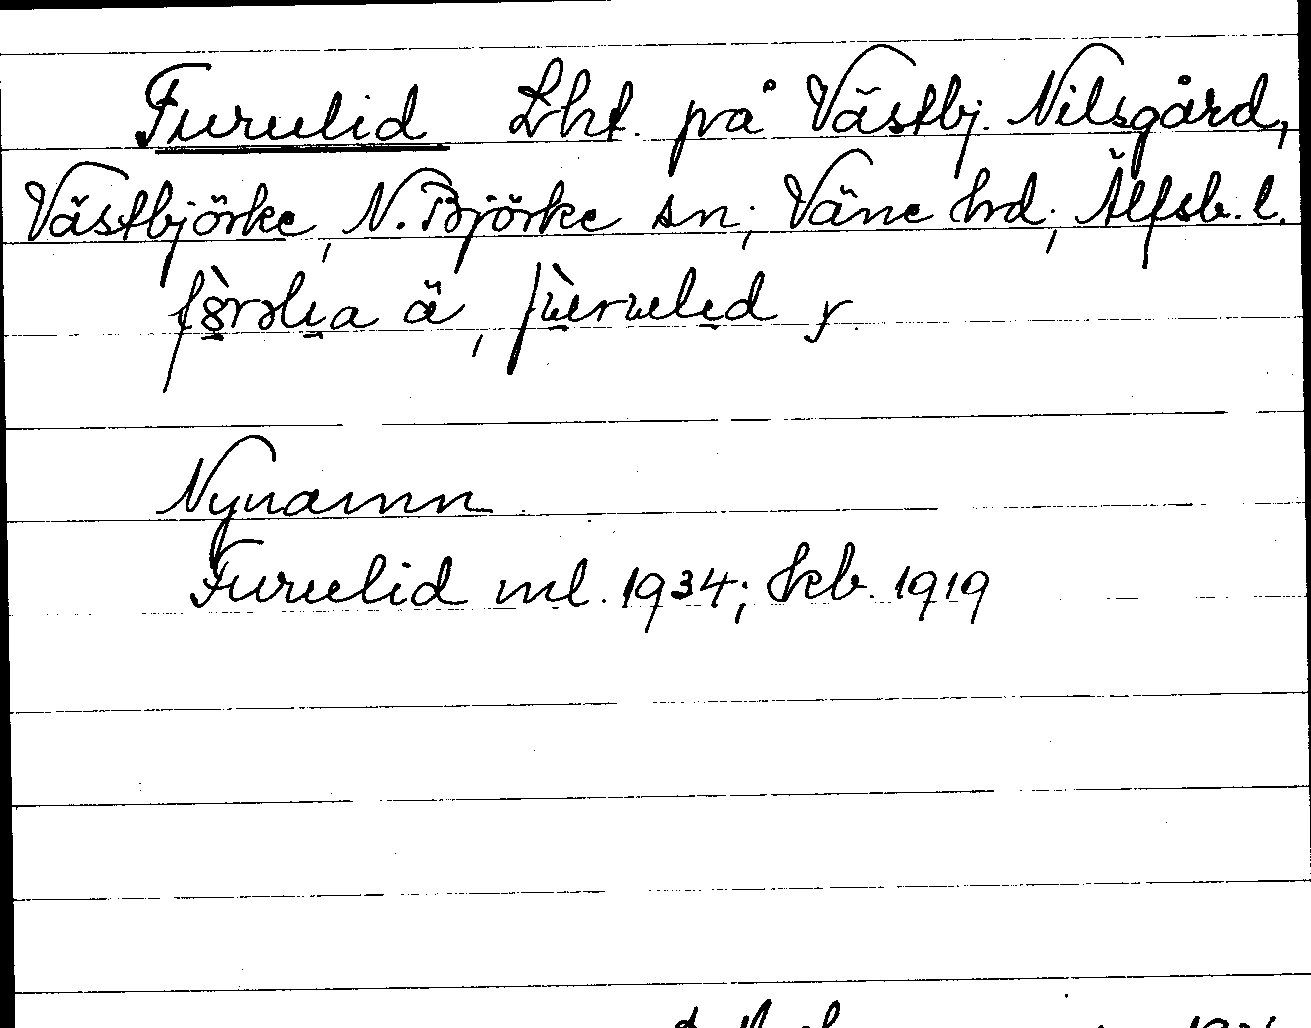 Furulid Lht. på Västbj. Nilsgård,
Västbjörke, N. Björke sn; Väne hd; Älfsb. l.
ä, y.
Nynamn
Furulid ml. 1934; kb. 1919